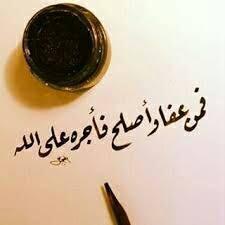 فمن عفا وأصلح فأجره على الله